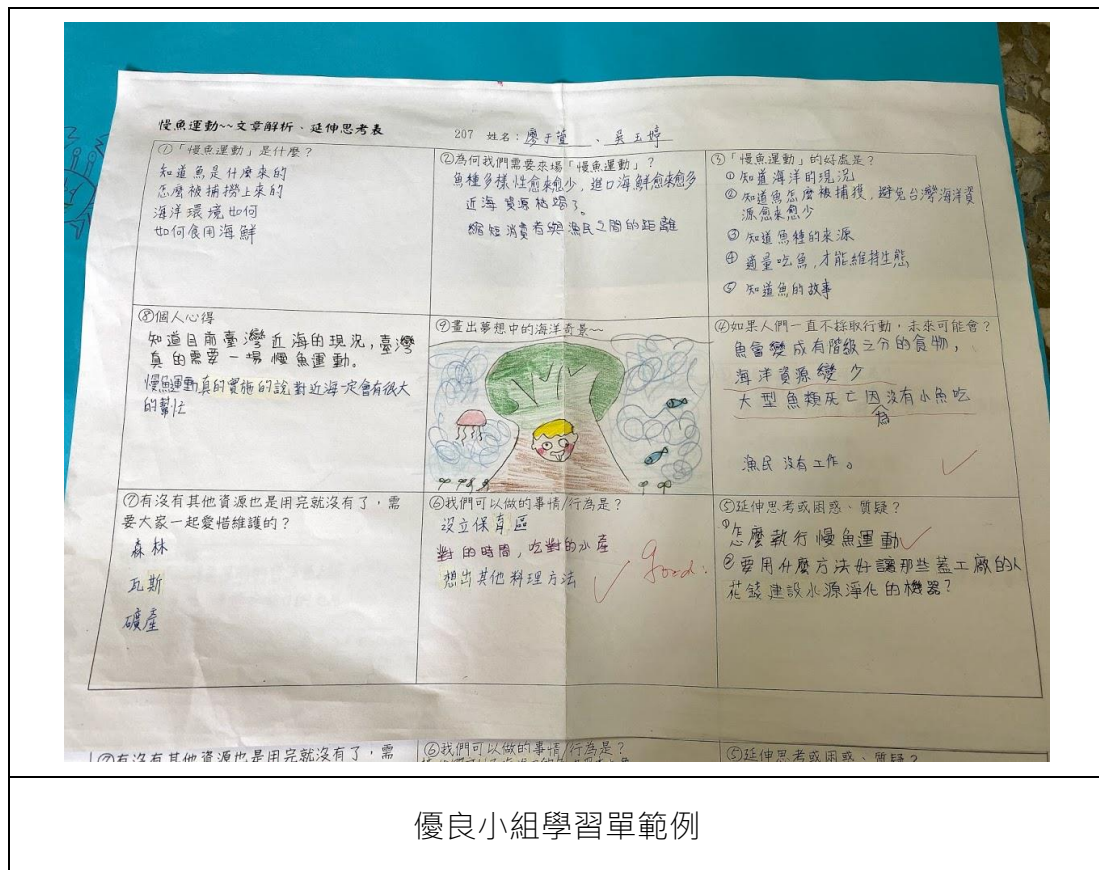 慢魚運動~~文章解析、延伸思考表
207 姓名：廖于萱、吳玉婷
①「慢魚運動」是什麼？
知道魚是什麼來的
怎麼被捕撈上來的
海洋環境如何
如何食用海鮮
②為何我們需要來場「慢魚運動」？
魚種多樣性愈來愈少，進口海鮮愈來愈多
近海資源枯竭了。
縮短消費者與漁民之間的距離
③「慢魚運動」的好處是？
① 知道海洋的現況
② 知道魚怎麼被捕獲，避免台灣海洋資
源愈來愈少
③ 知道魚種的來源
④ 適量吃魚，才能維持生態
⑤ 知道魚的故事
⑧個人心得
知道目前臺灣近海的現況，臺灣
真的需要一場慢魚運動。
慢魚運動真的實施的說對近海一定會有很大
的幫忙
⑨畫出夢想中的海洋奇景~~
④如果人們一直不採取行動，未來可能會？
魚會變成有階級之分的食物，
海洋資源變少
大型魚類死亡因為沒有小魚吃
漁民沒有工作。
⑦有沒有其他資源也是用完就沒有了，需
要大家一起愛惜維護的？
森林
瓦斯
礦產
⑥我們可以做的事情/行為是？
設立保育區
對的時間，吃對的水產
想出其他料理方法
good!
⑤延伸思考或困惑、質疑？
①怎麼執行慢魚運動
②要用什麼方法好讓那些蓋工廠的人
花錢建設水源淨化的機器？
⑦有沒有其他資源也是用完就沒有了，需
⑥我們可以做的事情/行為是？
⑤延伸思考或困惑、質疑？
優良小組學習單範例